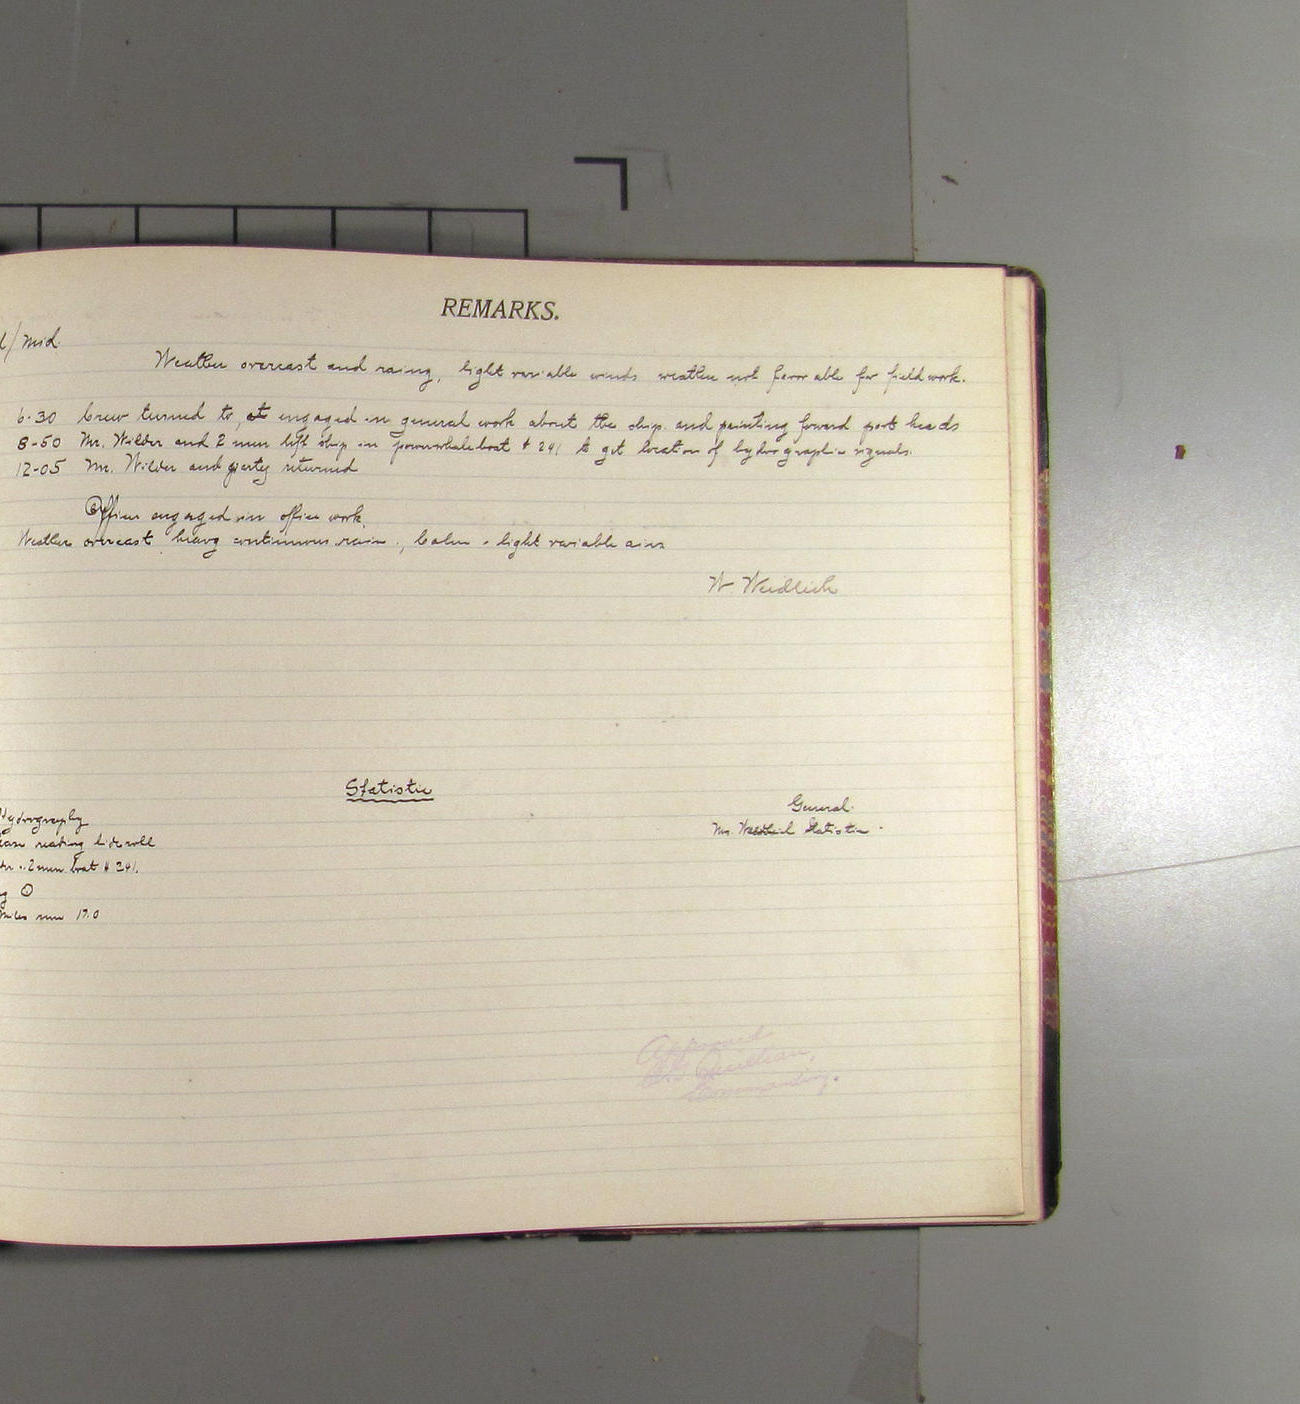 REMARKS.
/ mid.
Weather overcast and raing, light variable winds weather not favorable for fieldwork.
6-30 Crew turned to, at engaged in general work about the ship. and painting forward port heads
8-50 Mr. Wilder and 2 men left ship in powerwhaleboat # 241 to get location of hydrographic signals.
12-05 Mr. Wilder and party returned
Officers engaged in office work.
Weather overcast, heavy continuous rain., Calm - light variable airs
W Weidlich
Statistic
Hydrography
General.
reading tideroll
Mr. Statistic -
2 men boat # 241.
miles run 17.0
Approved
Commanding.